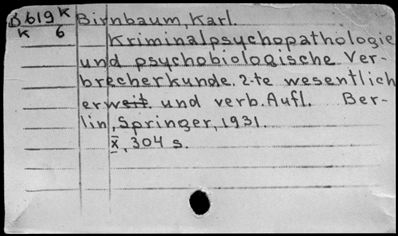 B619K Birnbaum, Karl.
K 6 Kriminalpsychopathologie
und psychobiologische Ver-
brecherkunde. 2.te wesentlich
erweit. und verb. Aufl. Ber-
lin, Springer, 1931.
x, 304 s.